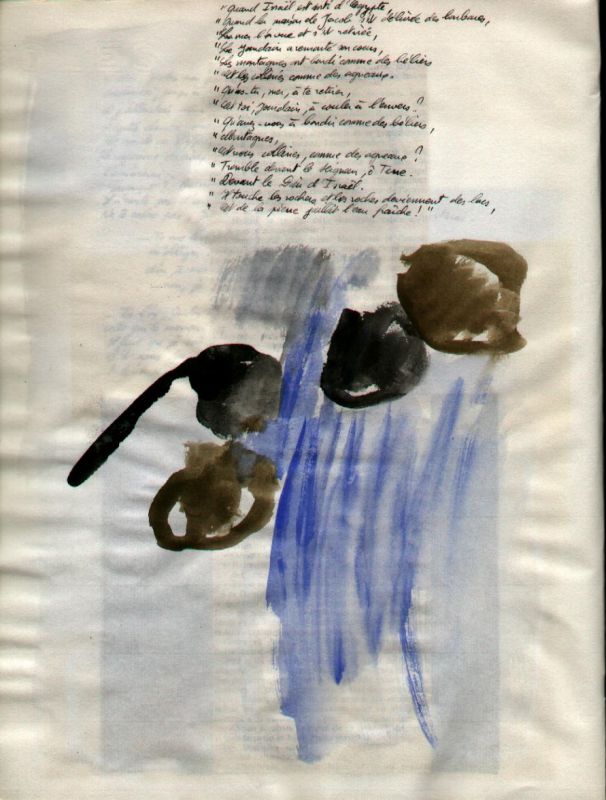 "Quand Israël est sorti d'Egypte,
"Quand la maison de Jacob s'est délivrée des barbares,
"La mer l'a vue et s'est retirée,
"Le Jourdain a remonté son cours,
"Les montagnes ont bondi comme des béliers
"et les collines comme des agneaux.
"Qu'as-tu, mer, à te retirer,
"et toi, Jourdain, à couler à l'envers?
"Qu'avez-vous à bondir comme des béliers,
"Montagnes,
"et vous collines, comme des agneaux?
"Tremble devant le Seigneur, ô Terre.
"Devant le Dieu d'Israël.
"Il touche les rochers et les roches deviennent des lacs,
"et de la pierre jaillit l'eau fraîche!"